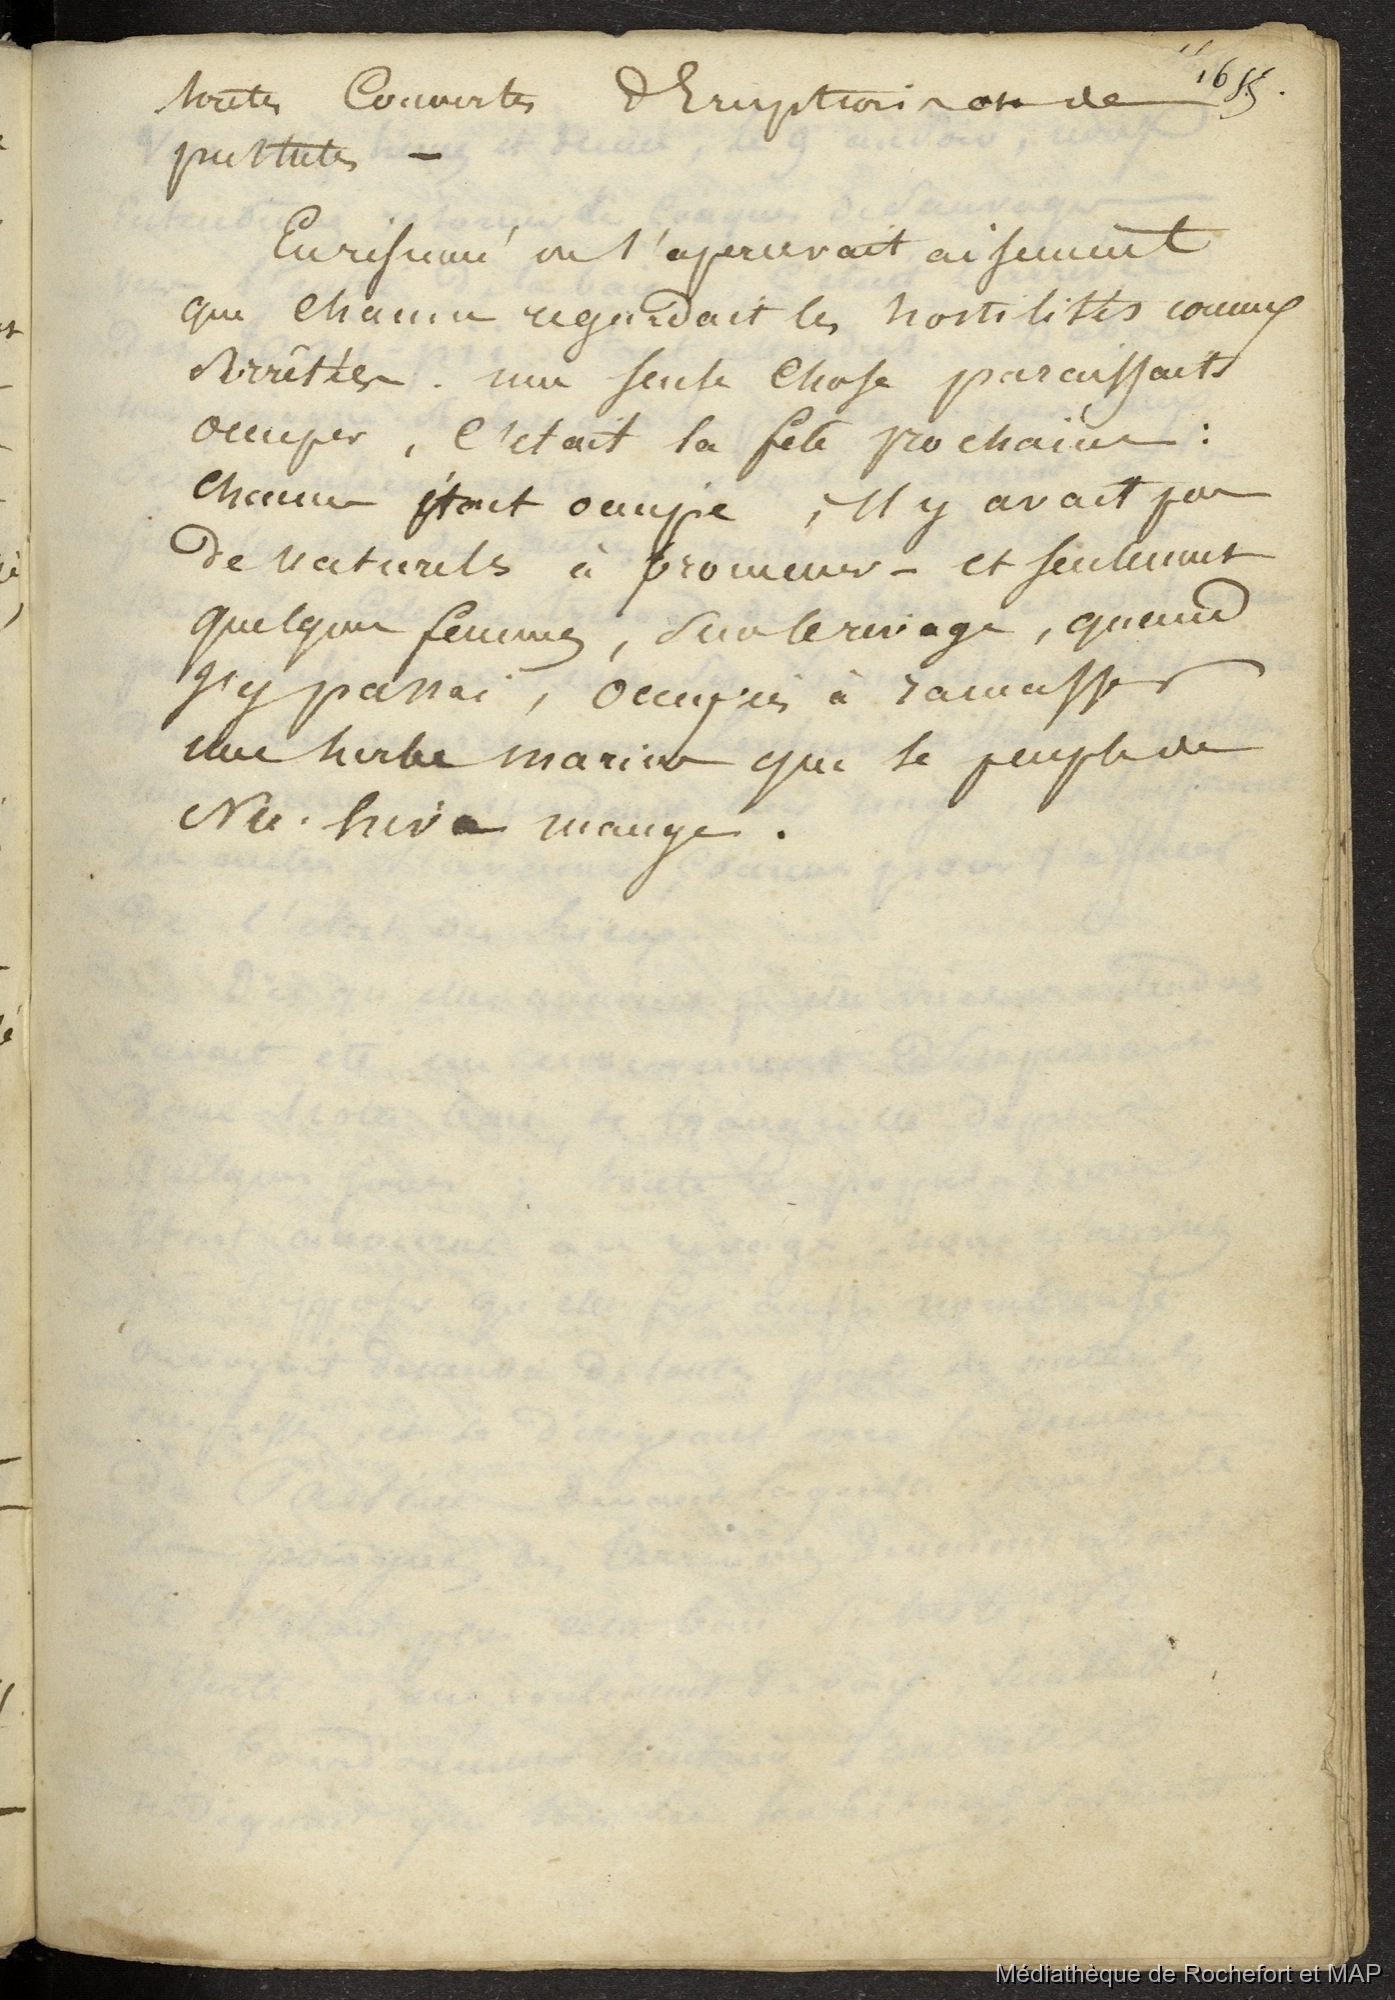 toutes Couvertes d'Eruptions ou de
pustules —
En résumé on s'apercevait aisement
que chacun regardait les hostilités comme
Arrêtées. une seule Chose paraissait
occuper, C'était la fête prochaine :
chacun était occupé, Il y avait peu
de naturels à promener – et seulement
quelques femmes, sur le rivage, quand
j'y passai, occupées à ramasser
une herbe marine que le peuple de
Nu-hiva mange.
Médiathèque de Rochefort et MAP